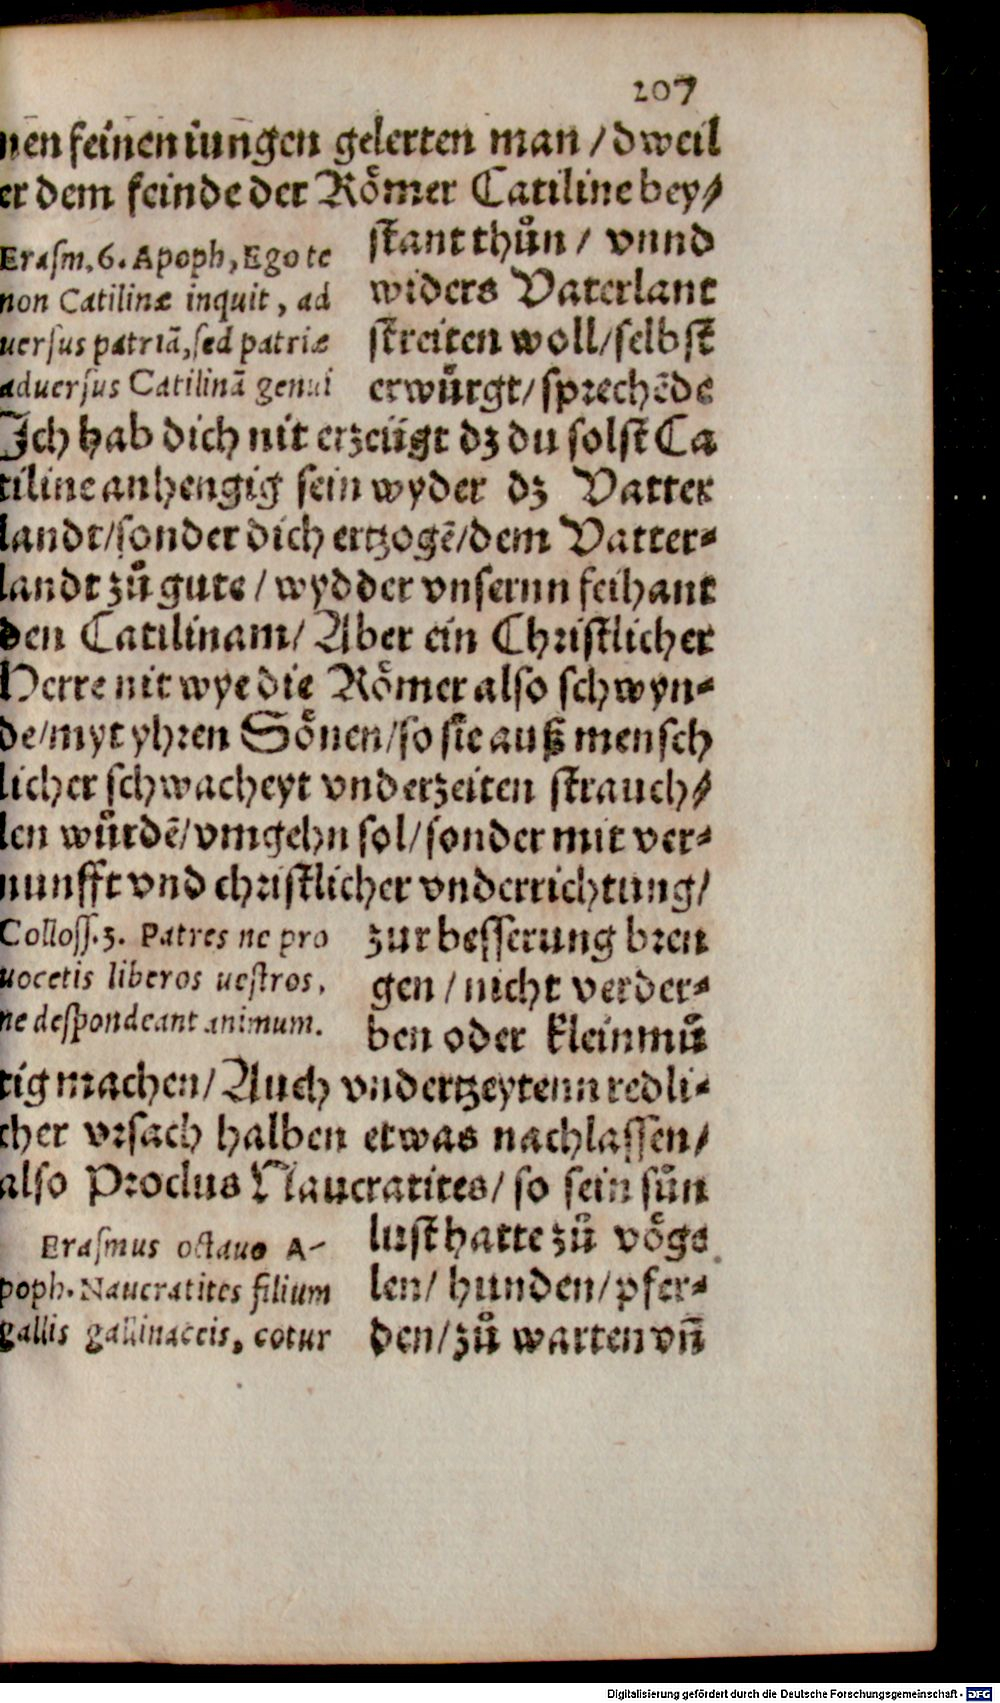 207
nen feinen iungen gelerten man / dweil
er dem feinde der Römer Catiline bey/
Erasm. 6. Apoph, Ego te
non Catilinæ inquit, ad
uersus patriā, sed patriæ
aduersus Catilinā genui
stant thůn / vnnd
widers Vaterlant
streiten woll/selbst
erwůrgt/sprechēde
Ich hab dich nit erzeügt dz du solst Ca
tiline anhengig sein wyder dz Vatter
landt/sonder dich ertzogē/dem Vatter-
landt zů gute / wydder vnsernn feihant
den Catilinam/ Aber ein Christlicher
Herre nit wye die Römer also schwyn-
de/myt yhren Sönen/so sie auß mensch
licher schwacheyt vnderzeiten strauch/
len wůrdē/vmgehn sol/sonder mit ver-
nunfft vnd christlicher vnderrichtung/
Colloss. 3. Patres ne pro
uocetis liberos uestros,
ne despondeant animum.
zur besserung bren
gen / nicht verder-
ben oder kleinmů
tig machen/ Auch vndertzeytenn redli-
cher vrsach halben etwas nachlassen/
also Proclus Naucratites/ so sein sün
Erasmus octauo A-
poph. Naucratites filium
gallis gallinaceis, cotur
lust hatte zů vöge
len/ hunden/pfer-
den/zů warten vñ
Digitalisierung gefördert durch die Deutsche Forschungsgemeinschaft - DFG